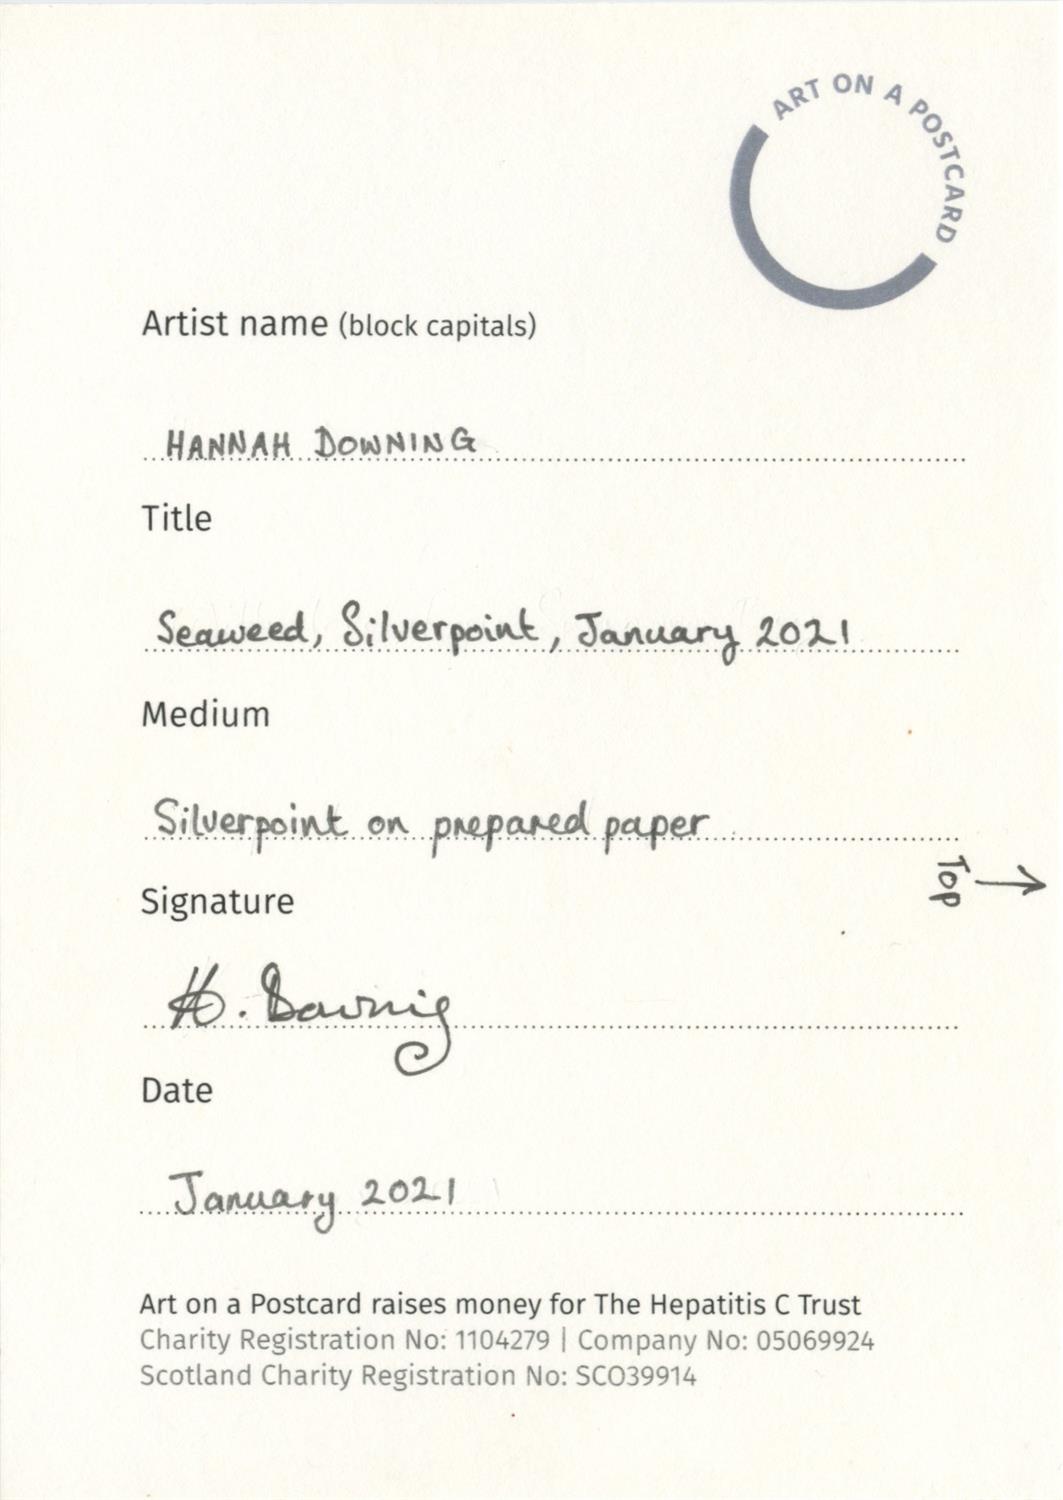 ART ON A POSTCARD
Artist name (block capitals)
HANNAH DOWNING
Title
Seaweed, Silverpoint, January 2021
Medium
Silverpoint on prepared paper
Top →
Signature
H. Downing
Date
January 2021
Art on a Postcard raises money for The Hepatitis C Trust
Charity Registration No: 1104279 | Company No: 05069924
Scotland Charity Registration No: SCO39914